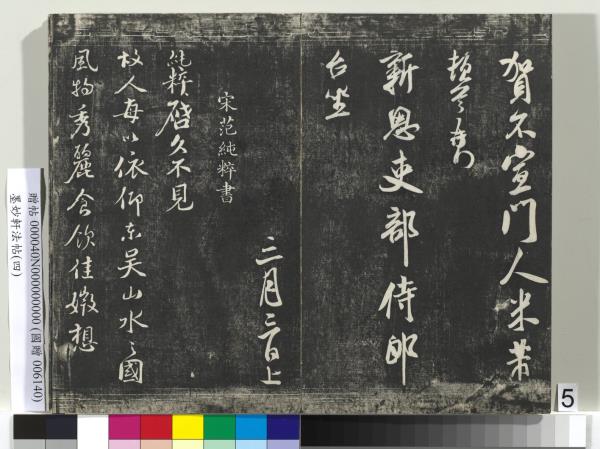 賀不宣門人米芾
頓首
新恩吏部侍郎
台坐
三月三日上
宋范純粹書
純粹啓久不見
故人每以依仰東吳山水之國
風物秀麗食飲佳媺想
贈帖 000040N000000000 (國贈 006140)
墨妙軒法帖(四)
5